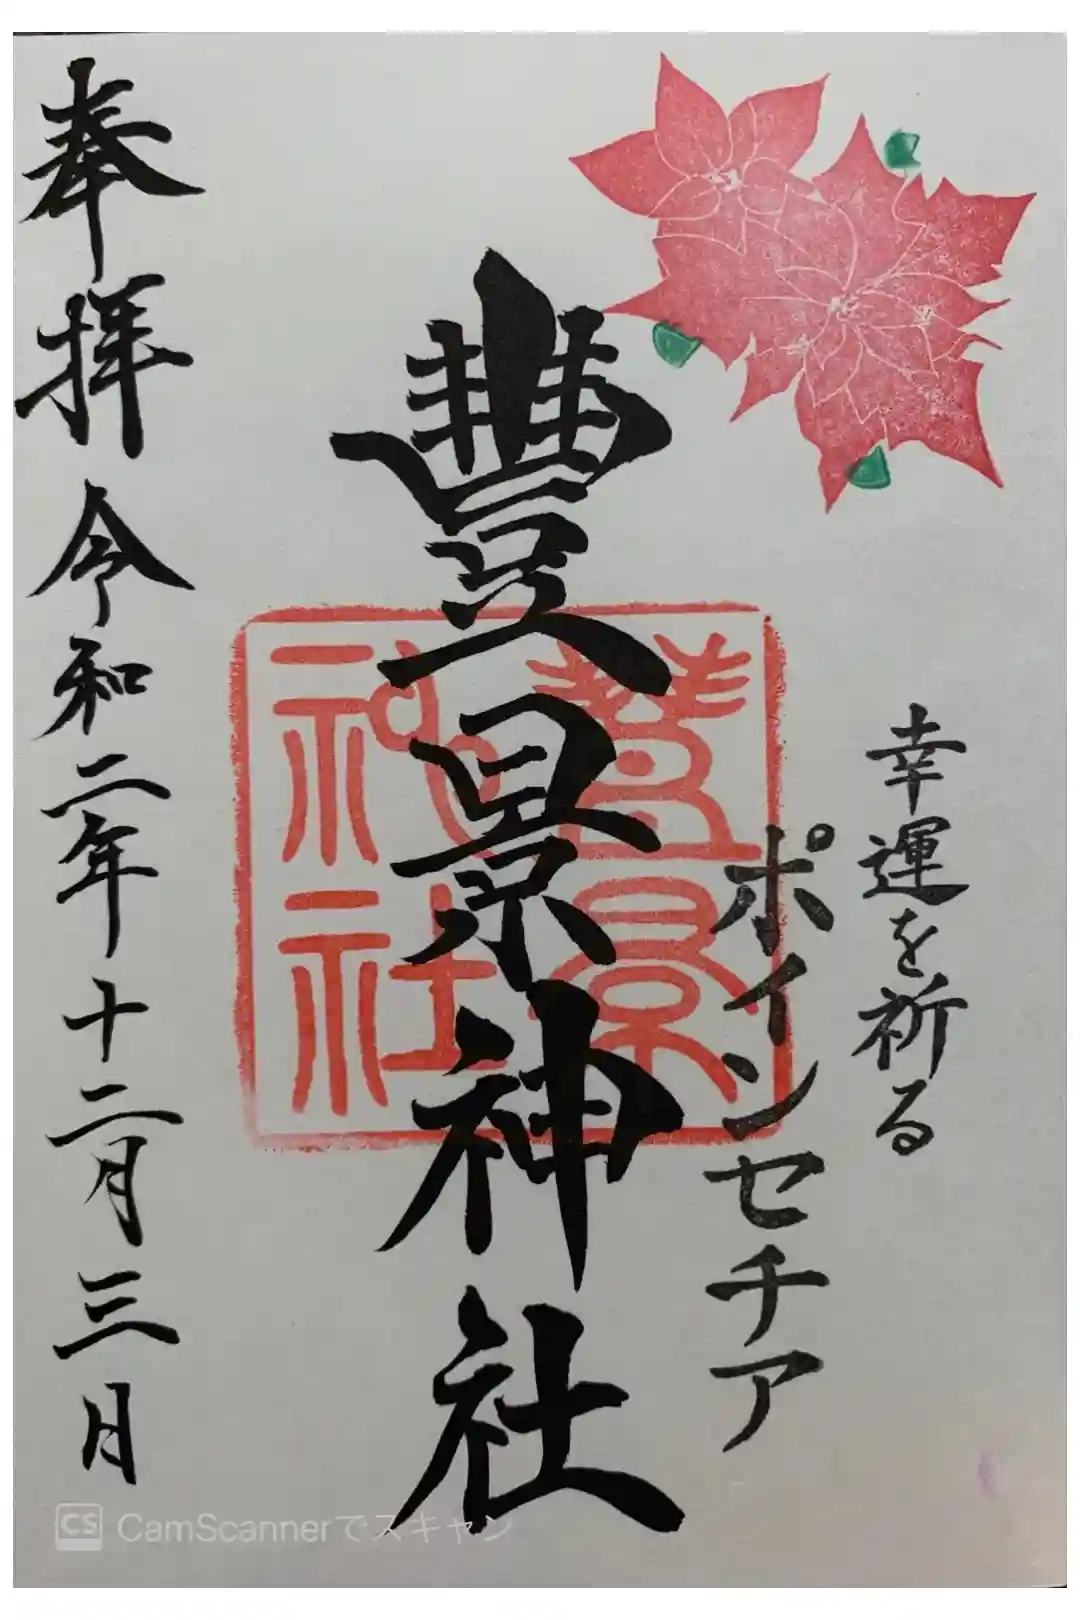 幸運を祈る
ポインセチア
豊景神社
豊景
神社
奉拝 令和二年十二月三日
CS CamScannerでスキャン